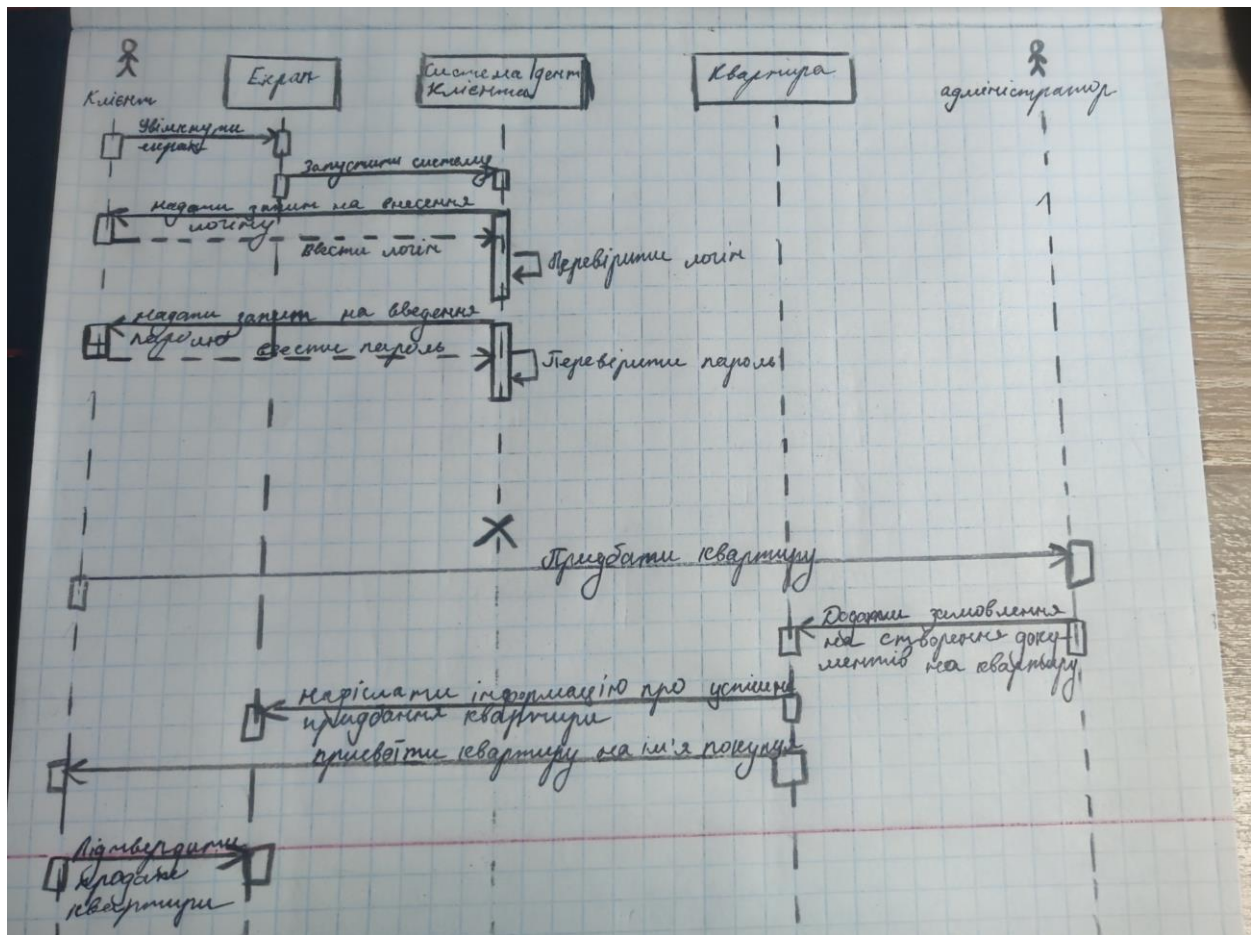 Клієнт
Екран
Система Ідент
Клієнта
Квартира
адміністратор
Увімкнути
екран
Запустити систему
Надати запит на внесення
логіну
Ввести логін
Перевірити логін
Надати запит на введення
паролю
ввести пароль
Перевірити пароль
Придбати квартиру
Додати замовлення
на створення доку-
ментів на квартиру
Надіслати інформацію про успішне
придбання квартири
присвоїти квартиру на ім'я покупця
Підтвердити
продаж
квартири